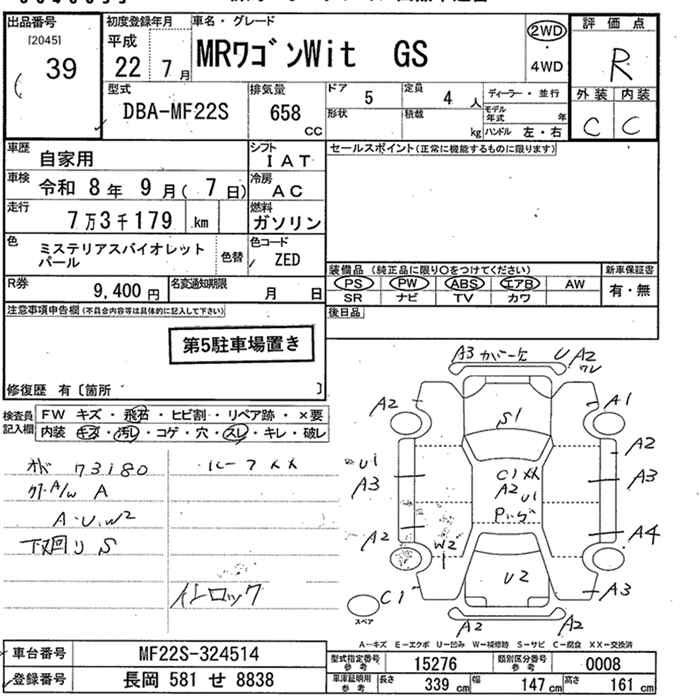 出品番号
[2045]
39
初度登録年月
平成
22 7 月
車名・グレード
MRワゴンWit GS
2WD
・
4WD
評価点
R
外装 内装
C C
型式
DBA-MF22S
排気量
658
CC
ドア
5
定員
4 人
形状
積載
kg
ディーラー・並行
モデル年式
年
ハンドル 左・右
車歴
自家用
シフト
IAT
車検
令和 8 年 9 月( 7 日)
冷房
AC
走行
7 万 3 千 179 km
燃料
ガソリン
色
ミステリアスバイオレット
パール
色替
色コード
ZED
R券
9,400 円
名変通知期限
月 日
セールスポイント(正常に機能するものに限ります)
装備品 (純正品に限り○をつけてください)
PS PW ABS エアB AW
SR ナビ TV カワ
新車保証書
有・無
後日品
注意事項申告欄 (不具合内容等は具体的に記入して下さい)
第5駐車場置き
修復歴 有〔箇所 〕
検査員
記入欄
FW キズ・飛石・ヒビ割・リペア跡・×要
内装 キズ・汚レ・コゲ・穴・スレ・キレ・破レ
オド 73180
ルーフXX
クリア/W A
A・U・W2
下回り S
インロック
A3 カバー欠
U A2
ワレ
A2
A1
S1
A2
U1
A3
C1 XX
A2 U1
A3
A2
W2
A4
U2
C1
A3
スペア
A2
A2
A-キズ E-エクボ U-凹み W-補修跡 S-サビ C-腐食 XX-交換済
車台番号
MF22S-324514
登録番号
長岡 581 せ 8838
型式指定番号
参考
15276
類別区分番号
参考
0008
車庫証明用
参考
長さ
339 cm
幅
147 cm
高さ
161 cm